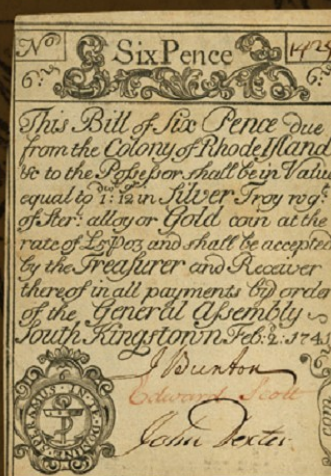 No
Six Pence
6:
6:
This Bill of Six Pence due
from the Colony of Rhode Island
&c to the Possessor shall be in Value
equal to 1: 12 in Silver Troy wg:
of Ster: alloy or Gold coin at the
rate of and shall be accepted
by the Treasurer and Receiver
thereof in all payments by order
of the General Assembly
South Kingstown Feb: 2: 1741
J Bunton
Edward Scott
John Dexter
IN TE DOMINE SPERAMUS